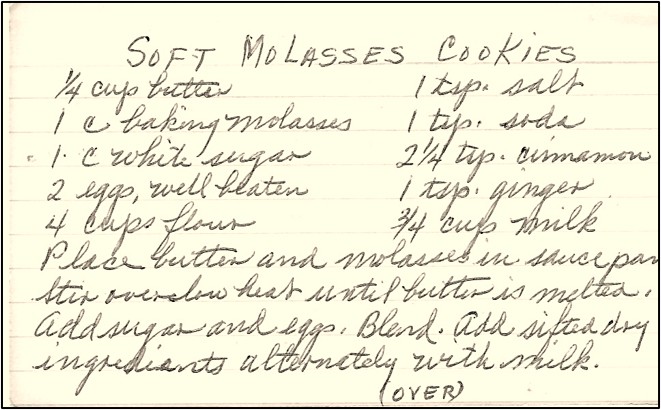 SOFT MOLASSES COOKIES
1/4 cup butter 1 tsp. salt
1 c baking molasses 1 tsp. soda
1 c white sugar 2 1/4 tsp. cinnamon
2 eggs, well beaten 1 tsp. ginger
4 cups flour 3/4 cup milk
Place butter and molasses in sauce pan
Stir over low heat until butter is melted.
Add sugar and eggs. Blend. Add sifted dry
ingredients alternately with milk.
(OVER)